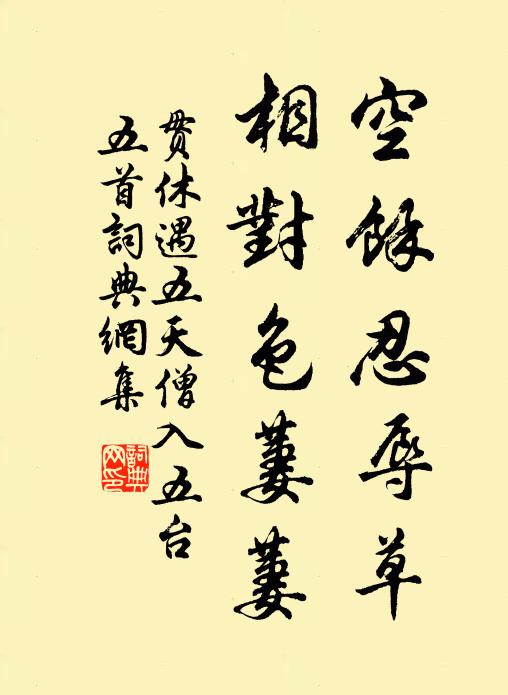 空餘忍辱草
相對色萋萋
貫休遇五天僧入五台
五首詞典網集
詞典网印